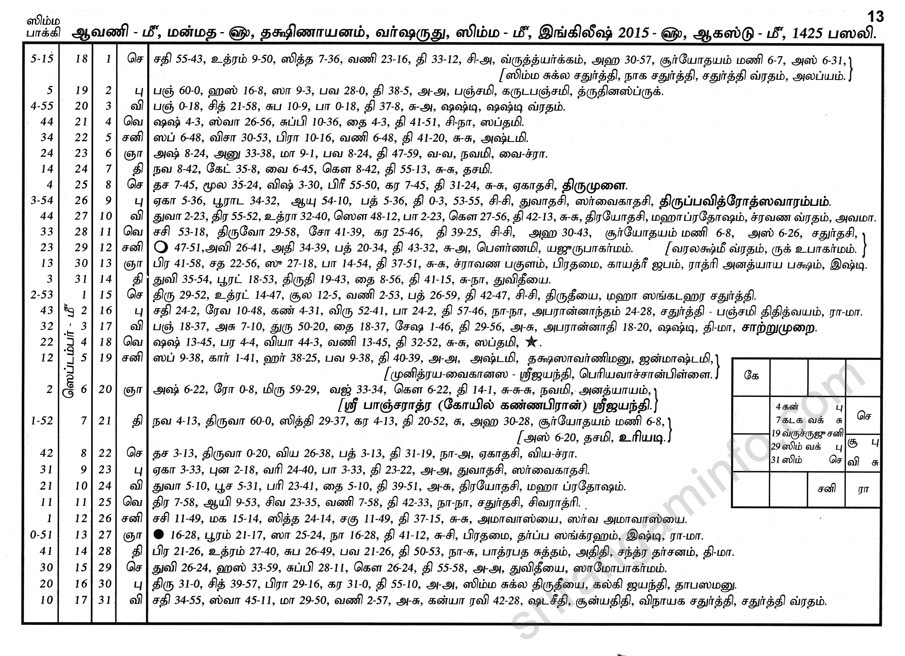 13
ஸிம்ம
பாக்கி ஆவணி - மீ, மன்மத - ௵, தக்ஷிணாயனம், வர்ஷருது, ஸிம்ம - மீ, இங்கிலீஷ் 2015 - ௵, ஆகஸ்டு - மீ, 1425 பஸலி.
5-15 18 1 செ சதி 55-43, உத்ரம் 9-50, ஸித்த 7-36, வணி 23-16, தி 33-12, சி-அ, வ்ருத்த்யர்க்கம், அஹ 30-57, சூர்யோதயம் மணி 6-7, அஸ் 6-31,
[ஸிம்ம சுக்ல சதுர்த்தி, நாக சதுர்த்தி, சதுர்த்தி வ்ரதம், அலப்யம்.
5 19 2 பு பஞ் 60-0, ஹஸ் 16-8, ஸா 9-3, பவ 28-0, தி 38-5, அ-அ, பஞ்சமி, கருடபஞ்சமி, த்ருதினஸ்ப்ருக்.
4-55 20 3 வி பஞ் 0-18, சித் 21-58, சுப 10-9, பா 0-18, தி 37-8, சு-அ, ஷஷ்டி, ஷஷ்டி வ்ரதம்.
44 21 4 வெ ஷஷ் 4-3, ஸ்வா 26-56, சுப்பி 10-36, தை 4-3, தி 41-51, சி-நா, ஸப்தமி.
34 22 5 சனி ஸப் 6-48, விசா 30-53, பிரா 10-16, வணி 6-48, தி 41-20, சு-சு, அஷ்டமி.
24 23 6 ஞா அஷ் 8-24, அனு 33-38, மா 9-1, பவ 8-24, தி 47-59, வ-வ, நவமி, வை-ச்ரா.
14 24 7 தி நவ 8-42, கேட் 35-8, வை 6-45, கௌ 8-42, தி 55-13, சு-சு, தசமி.
4 25 8 செ தச 7-45, மூல 35-24, விஷ் 3-30, பிரீ 55-50, கர 7-45, தி 31-24, சு-சு, ஏகாதசி, திருமுளை.
3-54 26 9 பு ஏகா 5-36, பூராட 34-32, ஆயு 54-10, பத் 5-36, தி 0-3, 53-55, சி-சி, துவாதசி, ஸர்வைகாதசி, திருப்பவித்ரோத்ஸவாரம்பம்.
44 27 10 வி துவா 2-23, திர 55-52, உத்ரா 32-40, ஸௌ 48-12, பா 2-23, கௌ 27-56, தி 42-13, சு-சு, திரயோதசி, மஹாப்ரதோஷம், ச்ரவண வ்ரதம், அவமா.
33 28 11 வெ சசி 53-18, திருவோ 29-58, சோ 41-39, கர 25-46, தி 39-25, சி-சி, அஹ 30-43, சூர்யோதயம் மணி 6-8, அஸ் 6-26, சதுர்தசி,
23 29 12 சனி 47-51, அவி 26-41, அதி 34-39, பத் 20-34, தி 43-32, சு-அ, பௌர்ணமி, யஜுருபாகர்மம். [வரலக்ஷ்மீ வ்ரதம், ருக் உபாகர்மம்.
13 30 13 ஞா பிர 41-58, சத 22-56, ஸு 27-18, பா 14-54, தி 37-51, சு-சு, ச்ராவண பகுளம், பிரதமை, காயத்ரீ ஜபம், ராத்ரி அனத்யாய பக்ஷம், இஷ்டி.
3 31 14 தி துவி 35-54, பூரட் 18-53, திருதி 19-43, தை 8-56, தி 41-15, சு-நா, துவிதீயை.
ஸெப்டம்பர் - மீ
2-53 1 15 செ திரு 29-52, உத்ரட் 14-47, சூல 12-5, வணி 2-53, பத் 26-59, தி 42-47, சி-சி, திருதீயை, மஹா ஸங்கடஹர சதுர்த்தி.
43 2 16 பு சதி 24-2, ரேவ 10-48, கண் 4-31, விரு 52-41, பா 24-2, தி 57-46, நா-நா, அபரான்னாந்தம் 24-28, சதுர்த்தி - பஞ்சமி திதித்வயம், ரா-மா.
32 3 17 வி பஞ் 18-37, அசு 7-10, துரு 50-20, தை 18-37, சேஷ 1-46, தி 29-56, அ-சு, அபரான்னாதி 18-20, ஷஷ்டி, தி-மா, சாற்றுமுறை.
22 4 18 வெ ஷஷ் 13-45, பர 4-4, வியா 44-3, வணி 13-45, தி 32-52, சு-சு, ஸப்தமி, ★.
12 5 19 சனி ஸப் 9-38, கார் 1-41, ஹர் 38-25, பவ 9-38, தி 40-39, அ-அ, அஷ்டமி, தக்ஷஸாவர்ணிமனு, ஜன்மாஷ்டமி,
[முனித்ரய-வைகானஸ - ஸ்ரீஜயந்தி, பெரியவாச்சான்பிள்ளை.
2 6 20 ஞா அஷ் 6-22, ரோ 0-8, மிரு 59-29, வஜ் 33-34, கௌ 6-22, தி 14-1, சு-சு-சு, நவமி, அனத்யாயம்,
[ஸ்ரீ பாஞ்சராத்ர (கோயில் கண்ணபிரான்) ஸ்ரீஜயந்தி.
1-52 7 21 தி நவ 4-13, திருவா 60-0, ஸித்தி 29-37, கர 4-13, தி 20-52, சு, அஹ 30-28, சூர்யோதயம் மணி 6-8,
[அஸ் 6-20, தசமி, உரியடி.
42 8 22 செ தச 3-13, திருவா 0-20, விய 26-38, பத் 3-13, தி 31-19, நா-அ, ஏகாதசி, விய-ச்ரா.
31 9 23 பு ஏகா 3-33, புன 2-18, வரி 24-40, பா 3-33, தி 23-22, அ-அ, துவாதசி, ஸர்வைகாதசி.
21 10 24 வி துவா 5-10, பூச 5-31, பரி 23-41, தை 5-10, தி 39-51, அ-சு, திரயோதசி, மஹா ப்ரதோஷம்.
11 11 25 வெ திர 7-58, ஆயி 9-53, சிவ 23-35, வணி 7-58, தி 42-33, நா-நா, சதுர்தசி, சிவராத்ரி.
1 12 26 சனி சசி 11-49, மக 15-14, ஸித்த 24-14, சகு 11-49, தி 37-15, சு-சு, அமாவாஸ்யை, ஸர்வ அமாவாஸ்யை.
0-51 13 27 ஞா ● 16-28, பூரம் 21-17, ஸா 25-24, நா 16-28, தி 41-12, சு-சி, பிரதமை, தர்ப்ப ஸங்க்ரஹம், இஷ்டி, ரா-மா.
41 14 28 தி பிர 21-26, உத்ரம் 27-40, சுப 26-49, பவ 21-26, தி 50-53, நா-சு, பாத்ரபத சுத்தம், அதிதி, சந்த்ர தர்சனம், தி-மா.
30 15 29 செ துவி 26-24, ஹஸ் 33-59, சுப்பி 28-11, கௌ 26-24, தி 55-58, அ-அ, துவிதீயை, ஸாமோபாகர்மம்.
20 16 30 பு திரு 31-0, சித் 39-57, பிரா 29-16, கர 31-0, தி 55-10, அ-அ, ஸிம்ம சுக்ல திருதீயை, கல்கி ஜயந்தி, தாபஸமனு.
10 17 31 வி சதி 34-55, ஸ்வா 45-11, மா 29-50, வணி 2-57, அ-சு, கன்யா ரவி 42-28, ஷடசீதி, சூன்யதிதி, விநாயக சதுர்த்தி, சதுர்த்தி வ்ரதம்.
கே
4 கன் பு
7 கடக வக் சு
19 வருச்ருஜு சனி
29 ஸிம் வக் பு
31 ஸிம் செ
செ
சூ பு
வி சு
சனி
ரா
srirangaminfo.com